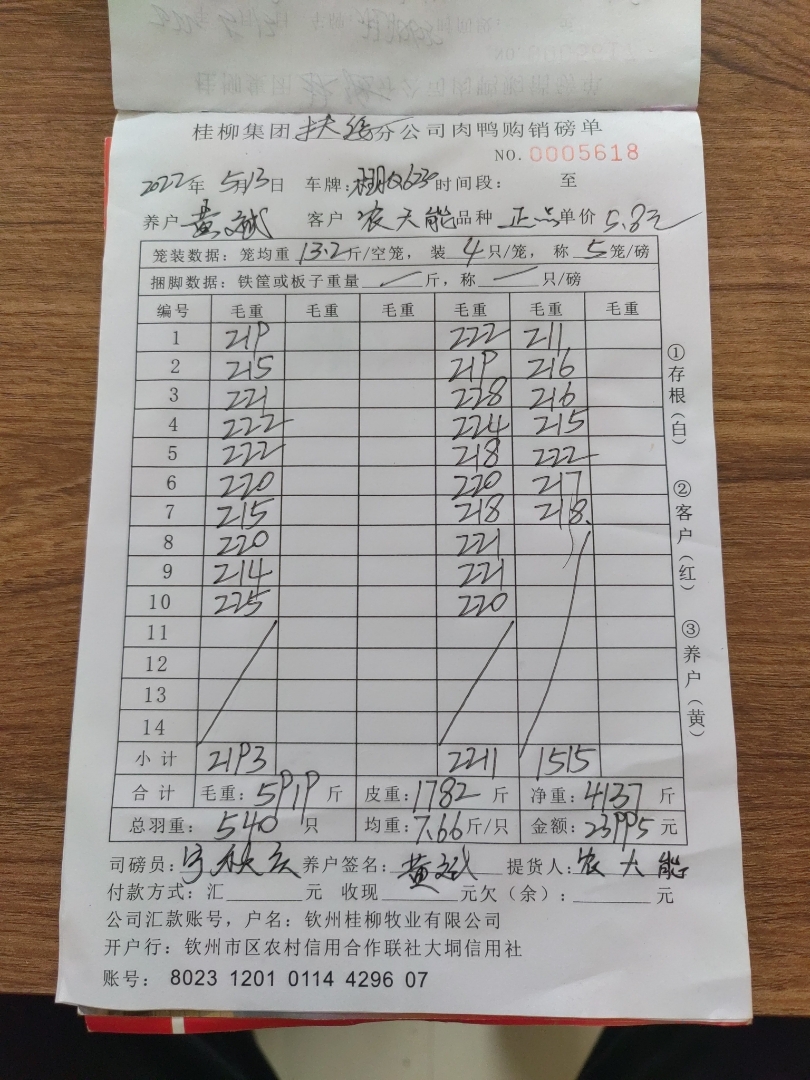 桂柳集团扶绥分公司肉鸭购销磅单
NO. 0005618
2022年 5月13日 车牌: Q1630 时间段: 至
养户 黄斌 客户 农大能 品种 正品 单价 5.8元
笼装数据: 笼均重 13.2 斤/空笼, 装 4 只/笼, 称 5 笼/磅
捆脚数据: 铁筐或板子重量 / 斤, 称 / 只/磅
编号 毛重 毛重 毛重 毛重 毛重 毛重
1 219 222 211
2 215 219 216
3 221 228 216
4 222 224 215
5 222 218 222
6 220 220 217
7 215 218 218
8 220 221
9 214 221
10 225 220
11
12
13
14
小计 2193 2211 1515
合计 毛重: 5919 斤 皮重: 1782 斤 净重: 4137 斤
总羽重: 540 只 均重: 7.66 斤/只 金额: 23995 元
司磅员: 养户签名: 黄斌 提货人: 农大能
付款方式: 汇 元 收现 元欠(余): 元
公司汇款账号, 户名: 钦州桂柳牧业有限公司
开户行: 钦州市区农村信用合作联社大垌信用社
账号: 8023 1201 0114 4296 07
①存根(白)
②客户(红)
③养户(黄)